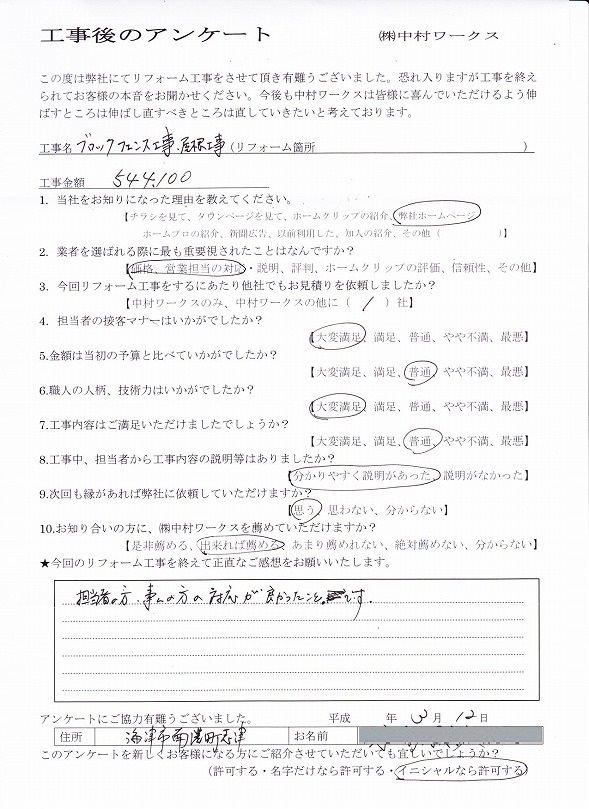 工事後のアンケート ㈱中村ワークス
この度は弊社にてリフォーム工事をさせて頂き有難うございました。恐れ入りますが工事を終え
られてお客様の本音をお聞かせください。今後も中村ワークスは皆様に喜んでいただけるよう伸
ばすところは伸ばし直すべきところは直していきたいと考えております。
工事名 ブロックフェンス工事.屋根工事 (リフォーム箇所 )
工事金額 544.100
1. 当社をお知りになった理由を教えてください。
【チラシを見て、タウンページを見て、ホームクリップの紹介、弊社ホームページ
ホームプロの紹介、新聞広告、以前利用した、知人の紹介、その他（ ）】
2. 業者を選ばれる際に最も重要視されたことはなんですか？
【価格、営業担当の対応・説明、評判、ホームクリップの評価、信頼性、その他】
3. 今回リフォーム工事をするにあたり他社でもお見積りを依頼しましたか？
【中村ワークスのみ、中村ワークスの他に（ 1 ）社】
4. 担当者の接客マナーはいかがでしたか？
【大変満足、満足、普通、やや不満、最悪】
5.金額は当初の予算と比べていかがでしたか？
【大変満足、満足、普通、やや不満、最悪】
6.職人の人柄、技術力はいかがでしたか？
【大変満足、満足、普通、やや不満、最悪】
7.工事内容はご満足いただけましたでしょうか？
【大変満足、満足、普通、やや不満、最悪】
8.工事中、担当者から工事内容の説明等はありましたか？
【分かりやすく説明があった、説明がなかった】
9.次回も縁があれば弊社に依頼していただけますか？
【思う、思わない、分からない】
10.お知り合いの方に、㈱中村ワークスを薦めていただけますか？
【是非薦める、出来れば薦める、あまり薦めれない、絶対薦めない、分からない】
★今回のリフォーム工事を終えて正直なご感想をお願いいたします。
担当者の方、事ムの方の対応が良かったこと です.
アンケートにご協力有難うございました。 平成 年 3 月 12 日
住所 海津市南濃町志津 お名前
このアンケートを新しくお客様になる方にご紹介させていただいても宜しいでしょうか？
(許可する・名字だけなら許可する・イニシャルなら許可する)